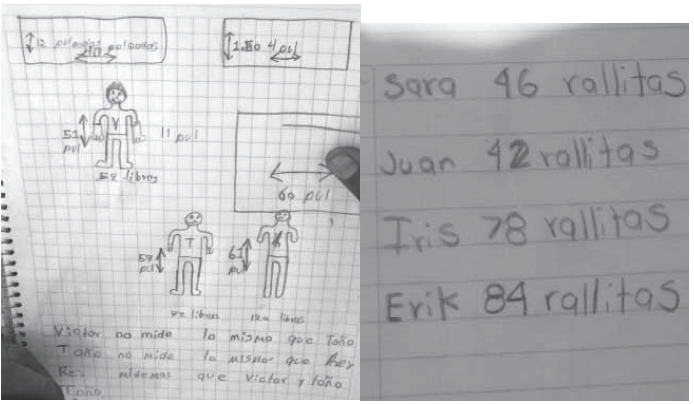 12 pulgadas
40 pulgadas
1.50 4 pul
V
51
pul
11 pul
52 libros
60 pul
T
59
pul
61
pul
82 libros
120 libros
Victor no mide lo mismo que Toño
Toño no mide lo mismo que Rey
Rey mide mas que Victor y Toño
Toño
Sara 46 rallitas
Juan 42 rallitas
Iris 78 rallitas
Erik 84 rallitas